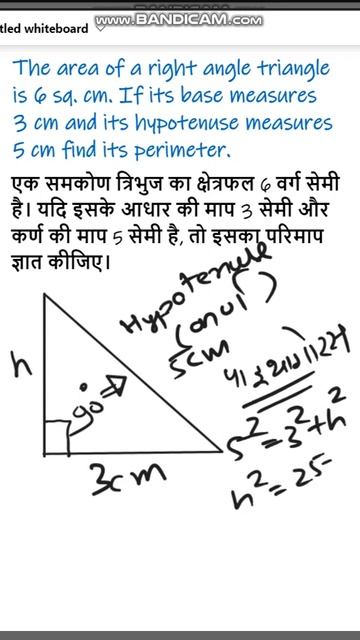 www.BANDICAM.com
tled whiteboard
The area of a right angle triangle
is 6 sq. cm. If its base measures
3 cm and its hypotenuse measures
5 cm find its perimeter.
एक समकोण त्रिभुज का क्षेत्रफल 6 वर्ग सेमी
है। यदि इसके आधार की माप 3 सेमी और
कर्ण की माप 5 सेमी है, तो इसका परिमाप
ज्ञात कीजिए।
Hypotenuse
5cm
h
90°
3cm
5² = 3² + h²
h² = 25